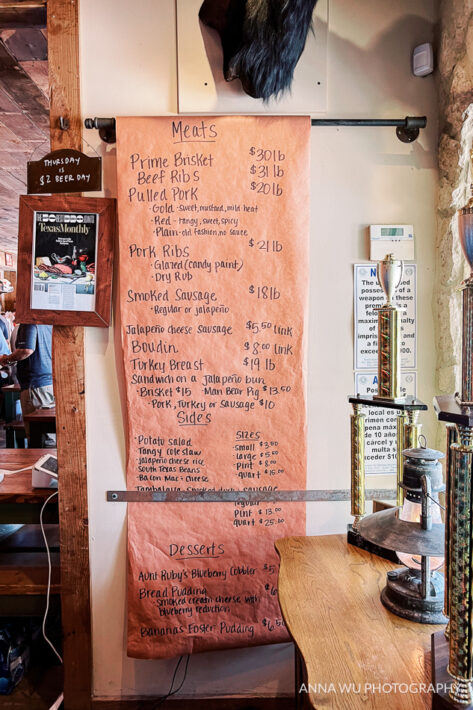 THURSDAY
IS
$2 BEER DAY
TexasMonthly
Meats
Prime Brisket $30lb
Beef Ribs $31lb
Pulled Pork $20lb
· Gold - sweet, mustard, mild heat
· Red - tangy, sweet, spicy
· Plain - old fashion, no sauce
Pork Ribs $21lb
· Glazed (candy paint)
· Dry Rub
Smoked Sausage $18lb
· Regular or jalapeño
Jalapeño cheese sausage $5.50 link
Boudin $8.00 link
Turkey Breast $19 lb
Sandwich on a jalapeño bun
· Brisket $15 · Man Bear Pig $13.50
· Pork, Turkey or Sausage $10
Sides
· Potato salad
Tangy cole slaw
Jalapeño cheese rice
South Texas Beans
Bacon Mac n Cheese
SIZES
Small
large $5.50
Pint $8.00
quart $15.00
Jambalaya
Pint $13.00
quart $25.00
Desserts
Aunt Ruby's Blueberry Cobbler
Bread Pudding
smoked cream cheese with
blueberry reduction
Bananas Foster Pudding $6.50
The
possess
a weapon
these prem
is a felo
maximum
penalty
of
impris
and a
exceed
local es
para
max
de 10 año
car
mul
exceder $10
ANNA WU PHOTOGRAPHY